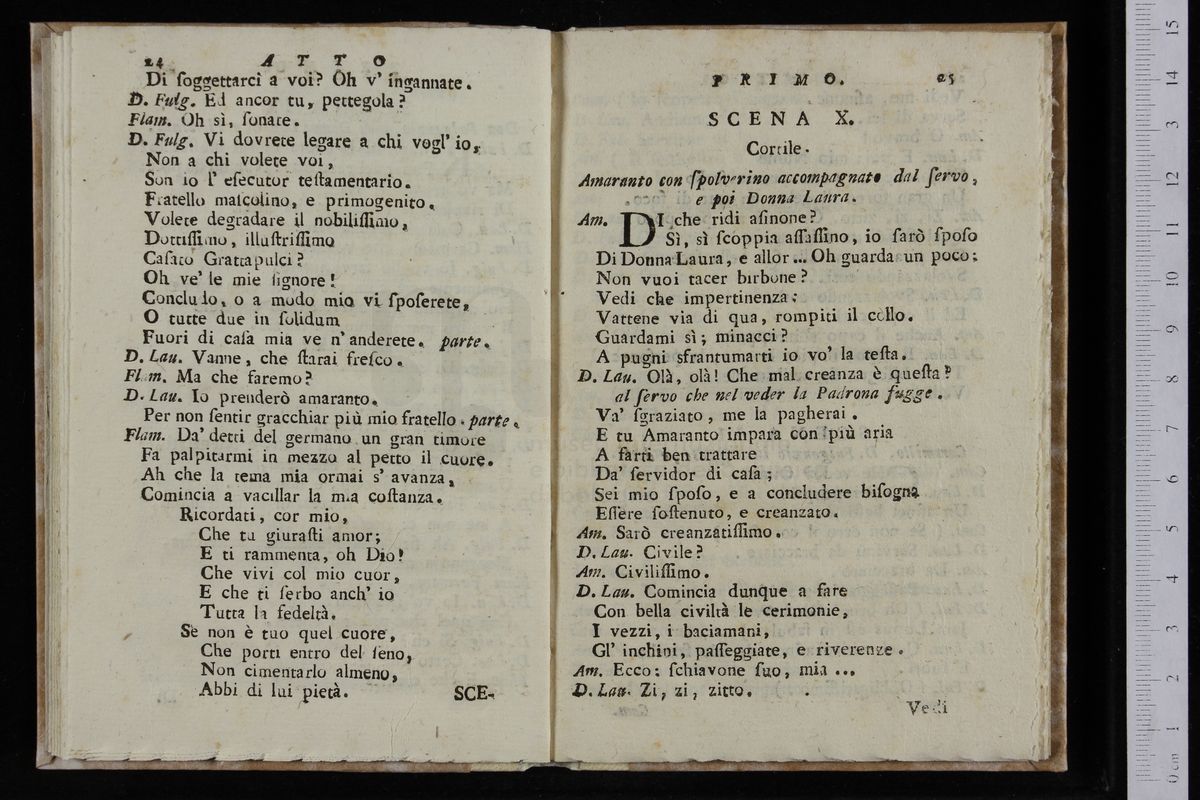 24 A T T O
Di ſoggettarci a voi? Oh v' ingannate.
D. Fulg. Ed ancor tu, pettegola?
Flam. Oh sì, ſonate.
D. Fulg. Vi dovrete legare a chi vogl' io,
Non a chi volete voi,
Son io l' eſecutor teſtamentario.
Fratello maſcolino, e primogenito.
Volete degradare il nobiliſſimo,
Dottiſſimo, illuſtriſſimo
Caſato Grattapulci?
Oh ve' le mie ſignore!
Concludo, o a modo mio vi ſpoſerete,
O tutte due in ſolidum
Fuori di caſa mia ve n' anderete. parte.
D. Lau. Vanne, che ſtarai freſco.
Flam. Ma che faremo?
D. Lau. Io prenderò amaranto.
Per non ſentir gracchiar più mio fratello. parte.
Flam. Da' detti del germano un gran timore
Fa palpitarmi in mezzo al petto il cuore.
Ah che la tema mia ormai s' avanza,
Comincia a vacillar la mia coſtanza.
Ricordati, cor mio,
Che tu giuraſti amor;
E ti rammenta, oh Dio!
Che vivi col mio cuor,
E che ti ſerbo anch' io
Tutta la fedeltà.
Se non è tuo quel cuore,
Che porti entro del ſeno,
Non cimentarlo almeno,
Abbi di lui pietà. SCE-
P R I M O. 25
SCENA X.
Cortile.
Amaranto con ſpolverino accompagnato dal ſervo,
e poi Donna Laura.
Am. DI che ridi aſinone?
Sì, sì ſcoppia aſſaſſino, io ſarò ſpoſo
Di Donna Laura, e allor ... Oh guarda un poco;
Non vuoi tacer birbone?
Vedi che impertinenza;
Vattene via di qua, rompiti il collo.
Guardami sì; minacci?
A pugni sfrantumarti io vo' la teſta.
D. Lau. Olà, olà! Che mal creanza è queſta?
al ſervo che nel veder la Padrona fugge.
Va' ſgraziato, me la pagherai.
E tu Amaranto impara con più aria
A farti ben trattare
Da' ſervidor di caſa;
Sei mio ſpoſo, e a concludere biſogna
Eſſere ſoſtenuto, e creanzato.
Am. Sarò creanzatiſſimo.
D. Lau. Civile?
Am. Civiliſſimo.
D. Lau. Comincia dunque a fare
Con bella civiltà le cerimonie,
I vezzi, i baciamani,
Gl' inchini, paſſeggiate, e riverenze.
Am. Ecco: ſchiavone ſuo, mia ...
D. Lau. Zi, zi, zitto.
Vedi
0 cm 1 2 3 4 5 6 7 8 9 10 11 12 13 14 15